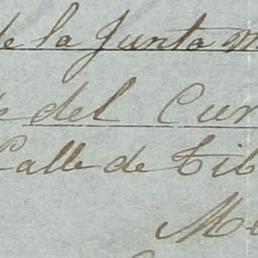 de la Junta m
del Cur
Calle de Tib
Me